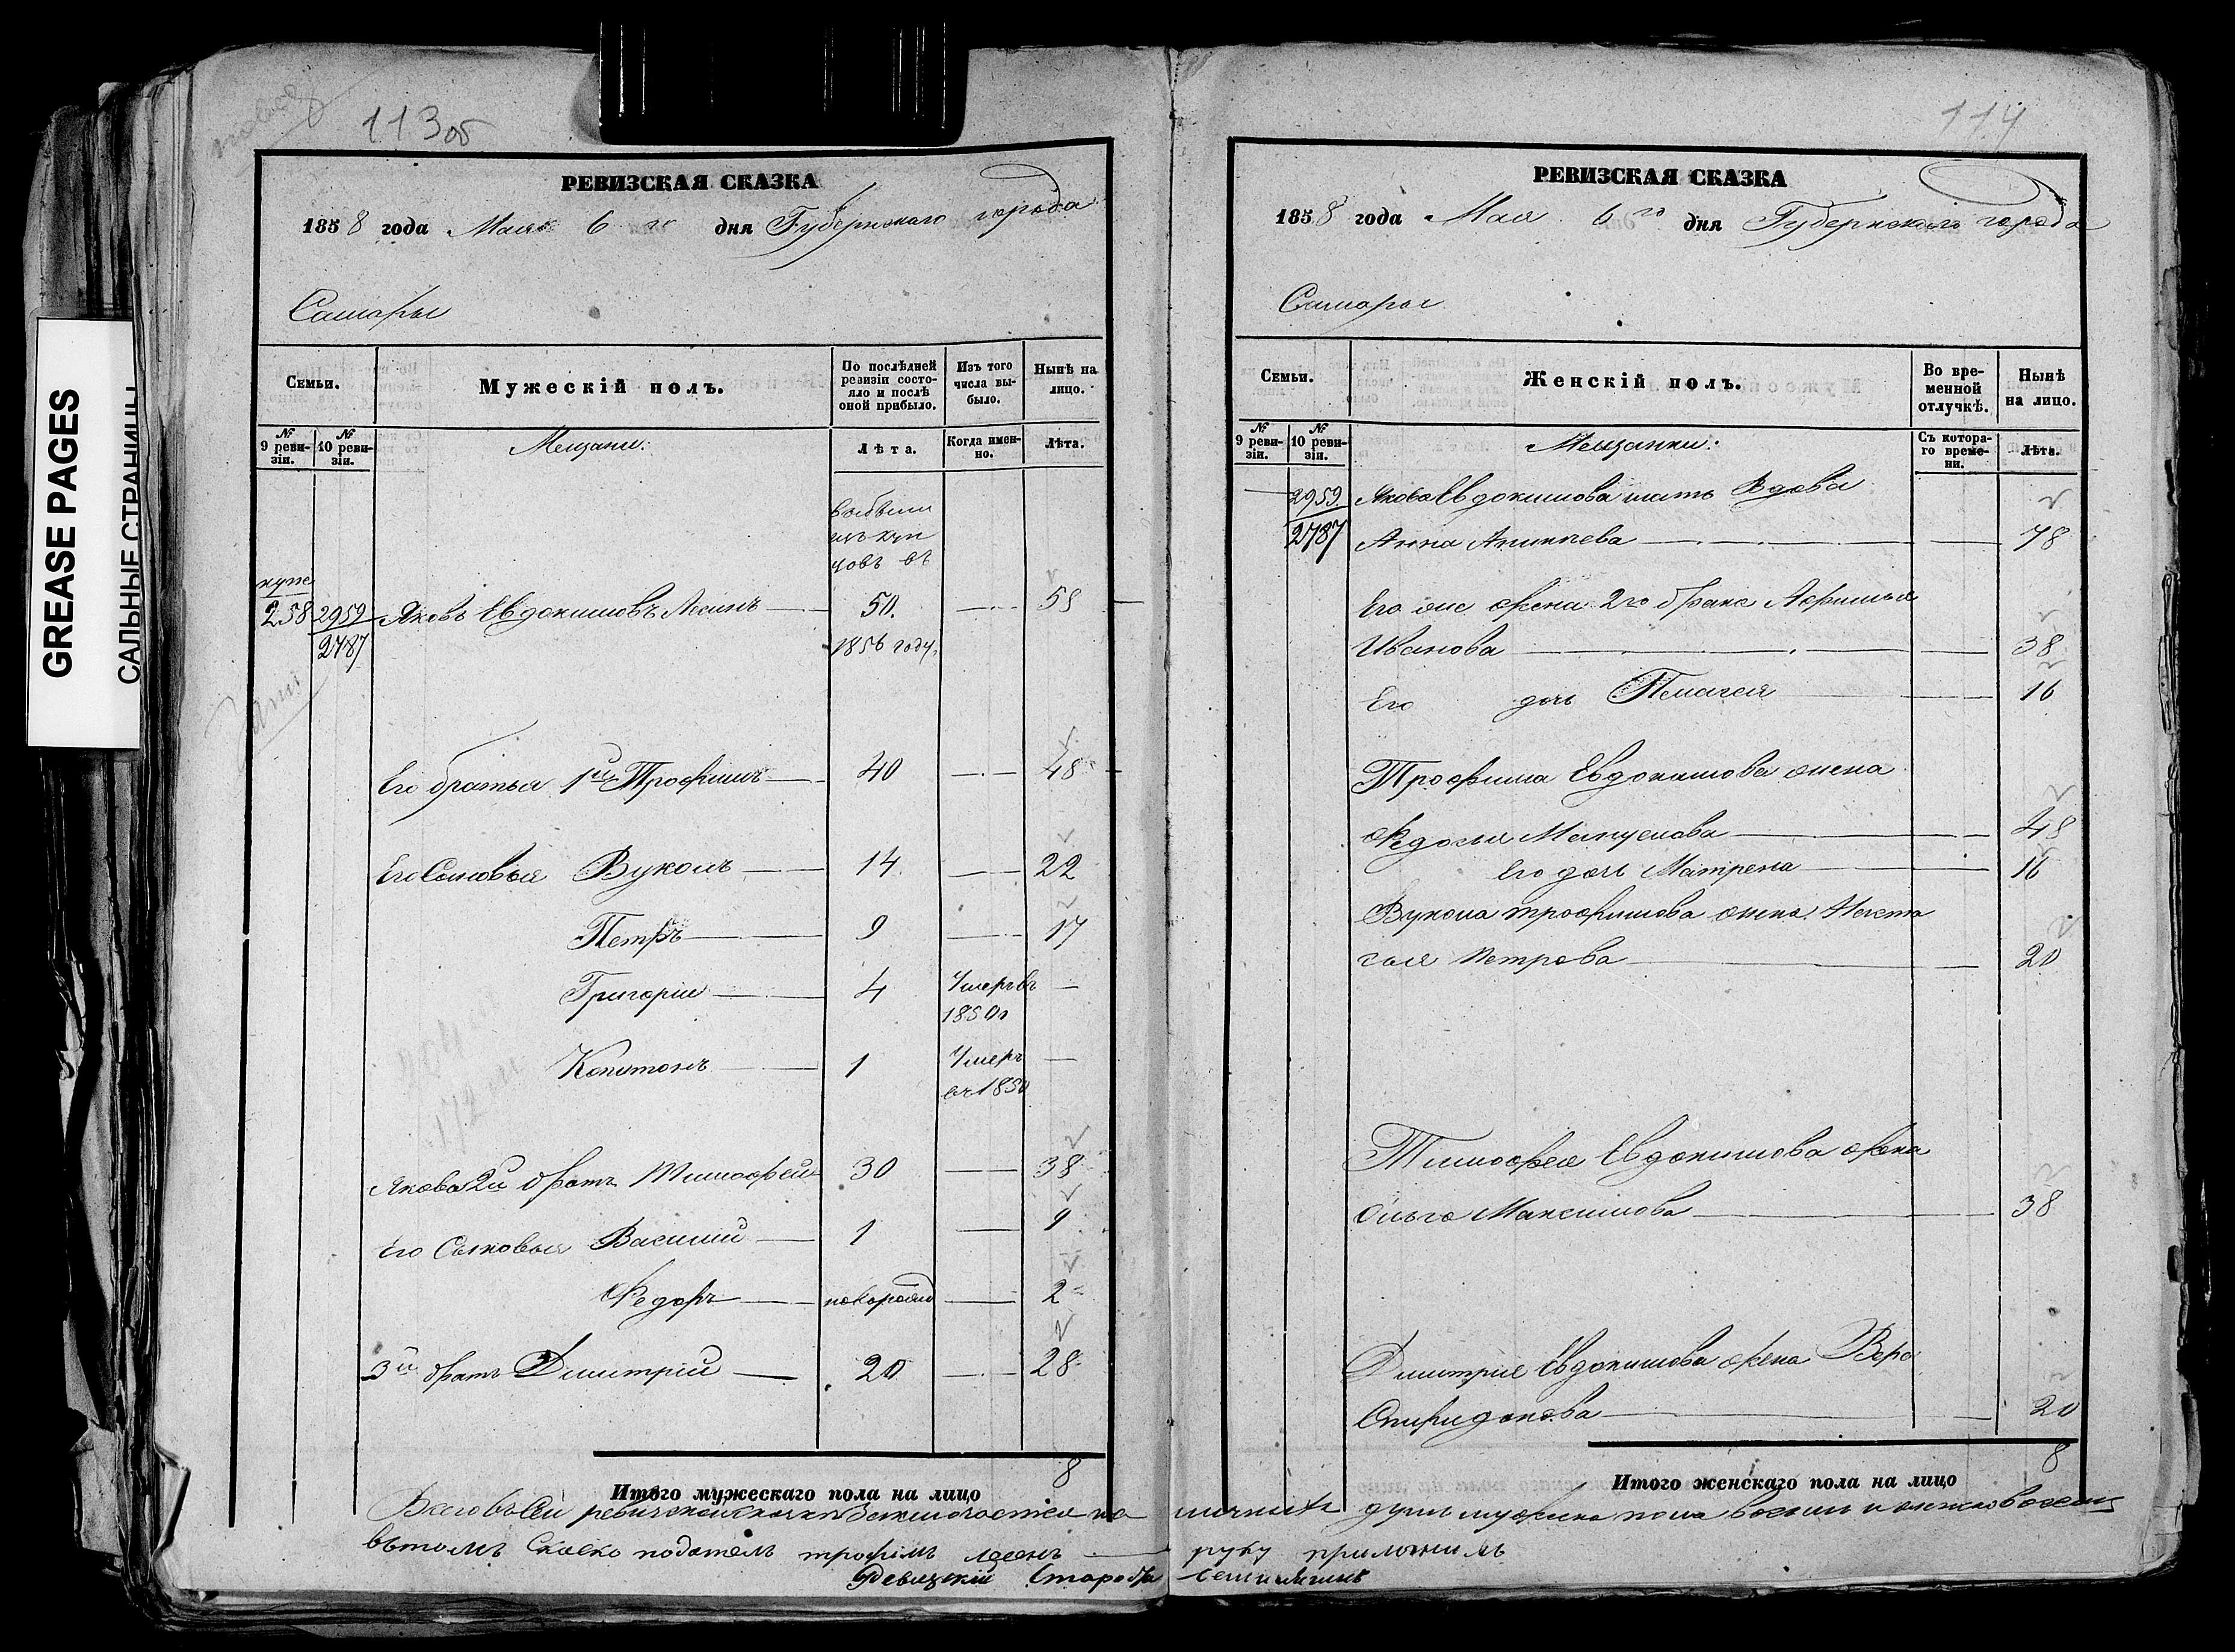 GREASE PAGES
САЛЬНЫЕ СТРАНИЦЫ
113об
РЕВИЗСКАЯ СКАЗКА
1858 года Мая 6 го дня Губернскаго города
Самары
Семьи.
Мужескій полъ.
По послѣдней ревизіи состояло и послѣ оной прибыло.
Изъ того числа выбыло.
Нынѣ на лицо.
№ 9 ревизіи.
№ 10 ревизіи.
Мещане:
Лѣта.
Когда именно.
Лѣта.
изъ куп
цовъ въ
258 2959 Яковъ Евдокимовъ Лесинъ 50. 58
2787 1856 году.
Его братья 1й Трофимъ 40 48
Его Сыновья Вуколъ 14 22
Петръ 9 17
Григорій 4 Умеръ въ
1850
Копитонъ 1 Умеръ
въ 1850
Якова 2й братъ Тимофей 30 38
Его Сыновья Василий 1 9
Федоръ новорожд 2
3й братъ Дмитрій 20 28
8
Итого мужескаго пола на лицо
114
РЕВИЗСКАЯ СКАЗКА
1858 года Мая 6 го дня Губернскаго города
Самары
Семьи.
Женскій полъ.
Во временной отлучкѣ.
Нынѣ на лицо.
№ 9 ревизіи.
№ 10 ревизіи.
Мещанки:
Съ котораго времени.
Лѣта.
2959 Якова Евдокимова мать Вдова
2787 Анна 78
Его же жена 2го брака
Иванова 38
Его дочь Пелагея 16
Трофима Евдокимова жена
Федосья Мануелова 48
Его дочь Матрена 16
Вукола трофимова жена Наста
сья Петрова 20
Тимофея Евдокимова жена
Ольга Максимова 38
Дмитрия Евдокимова жена Вера
Спиридонова 20
8
Итого женскаго пола на лицо
Всего въ сей ревизской сказкѣ Заключается на личность душъ мужска пола восемь и женска восемь
вътомъ Скаско податель трофімъ лесенъ руку приложилъ
Ревизскій Староста